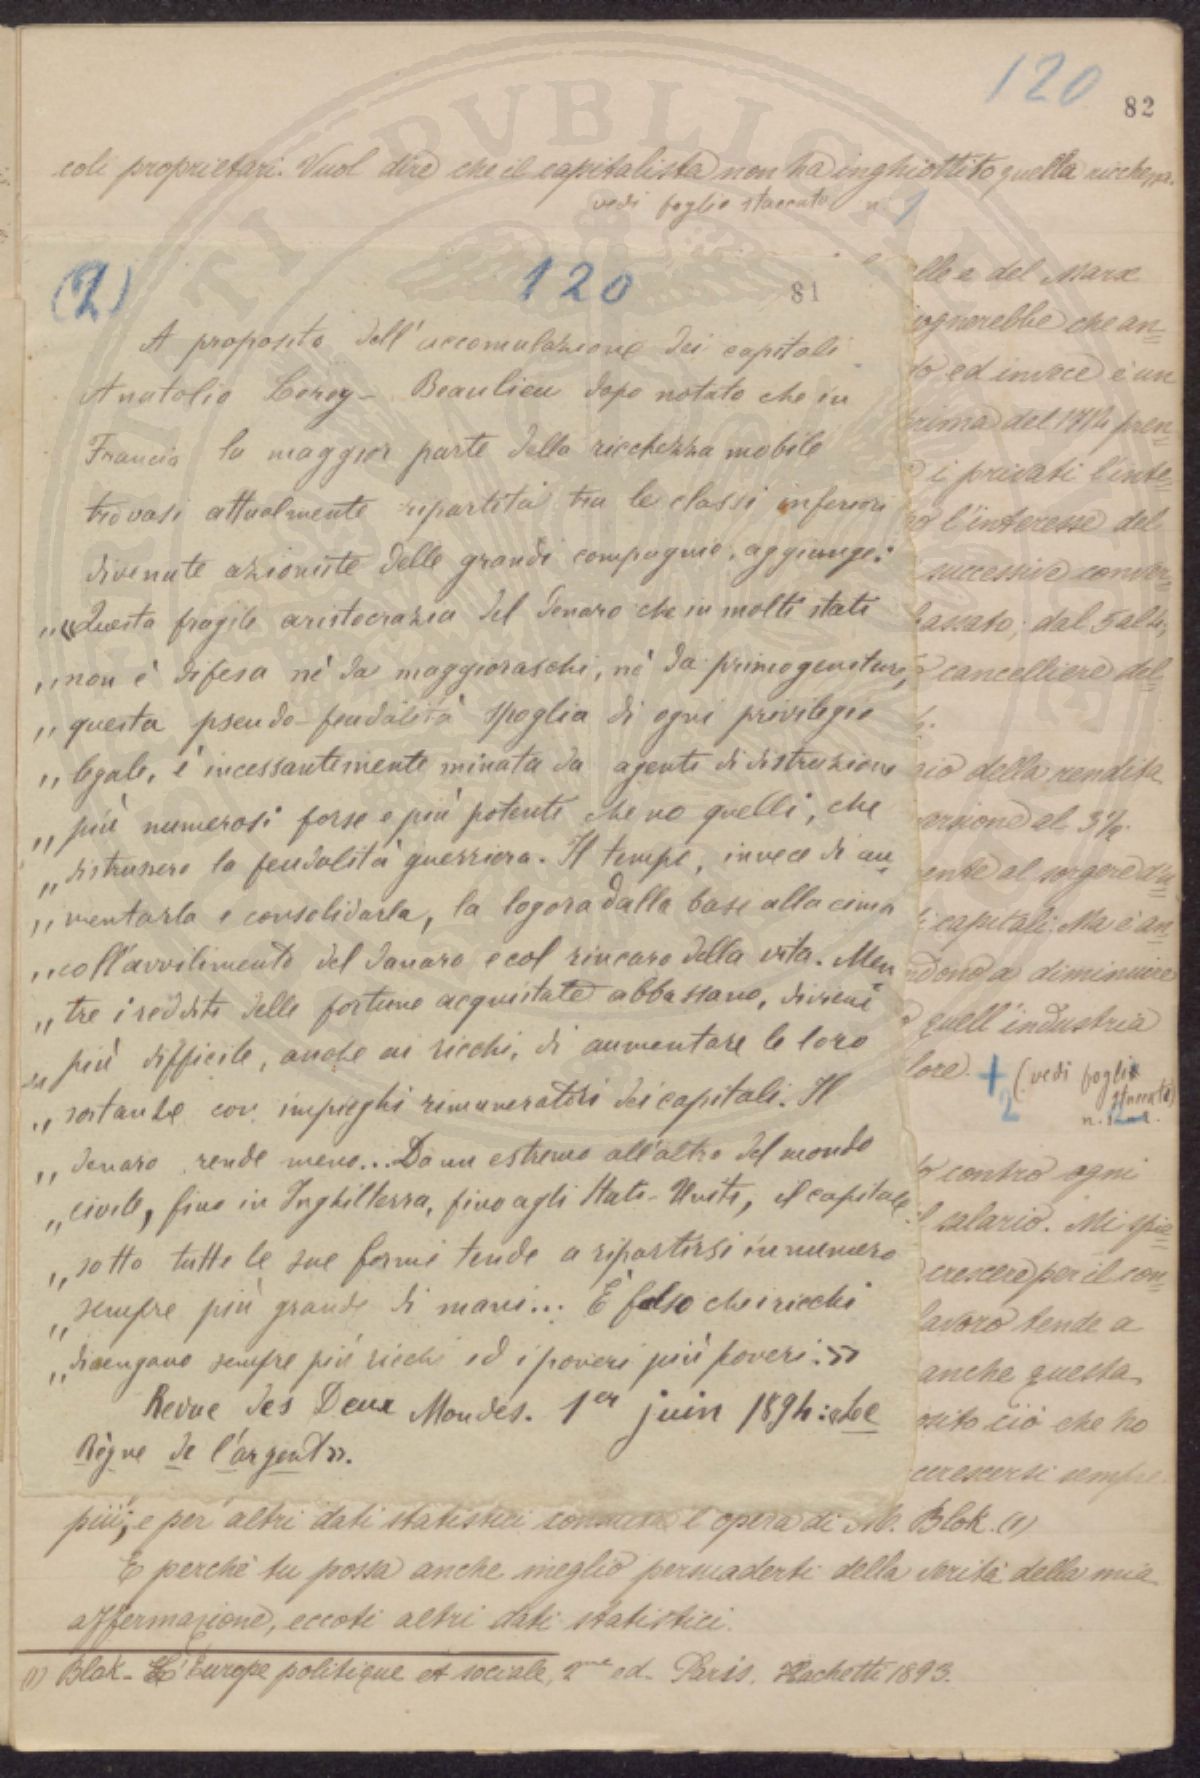 120
82
coli proprietari. Vuol dire che il capitalista non ha inghiottito quella ricchezza.
vedi foglio staccato n. 1
(2) 120 81
A proposito dell'accomulazione dei capitali
Anatolio Leroy-Beaulieu dopo notato che in
Francia la maggior parte della ricchezza mobile
trovasi attualmente ripartita tra le classi inferiori
divenute azioniste delle grandi compagnie, aggiunge:
„«Questa fragile aristocrazia del denaro che in molti stati
„non è difesa nè da maggioraschi, nè da primogeniture,
„questa pseudo-feudalità spoglia di ogni privilegio
„legale, è incessantemente minata da agenti di distruzione
„più numerosi forse e più potenti che no quelli, che
„distrussero la feudalità guerriera. Il tempo, invece di au
„mentarla e consolidarla, la logora dalla base alla cima
„coll'avvilimento del danaro e col rincaro della vita. Men
„tre i redditi delle fortune acquistate abbassano, diviene
„più difficile, anche ai ricchi, di aumentare le loro
„sostanze con impieghi rimuneratori dei capitali. Il
„denaro rende meno... Da un estremo all'altro del mondo
„civile, fino in Inghilterra, fino agli Stati-Uniti, il capitale
„sotto tutte le sue forme tende a ripartirsi in numero
„sempre più grande di mani... È falso che i ricchi
„divengano sempre più ricchi ed i poveri più poveri.»
Revue des Deux Mondes. 1er juin 1894: «Le
Règne de l'argent».
lle e del Marx
ognerebbe che an=
to ed invece è un
prima del 1714 pren=
i privati l'inte=
l'interesse del
successive conver=
bassato; dal 5 al 4,
cancelliere del
della rendita
al 3%.
ente al sorgere d'u=
capitali. Ma è an=
ndono a diminuire
quell'industria
lore. + 2 (vedi foglio staccato) n.
to contro ogni
l salario. Mi spie=
crescere per il con=
lavoro tende a
anche questa
osito ciò che ho
ccrescersi sempre
più; e per altri dati statistici l'opera di M. Blok. (1)
E perchè tu possa anche meglio persuaderti della verità della mia
affermazione, eccoti altri dati statistici.
(1) Blok - L'Europe politique et sociale, 2me ed. Paris. Hachette 1893.